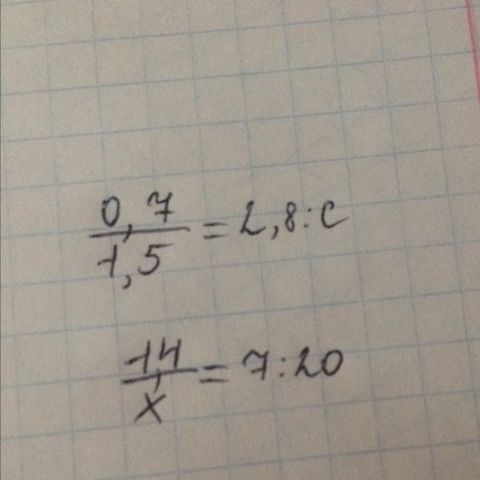 0,7/1,5 = 2,8:c
14/x = 7:20